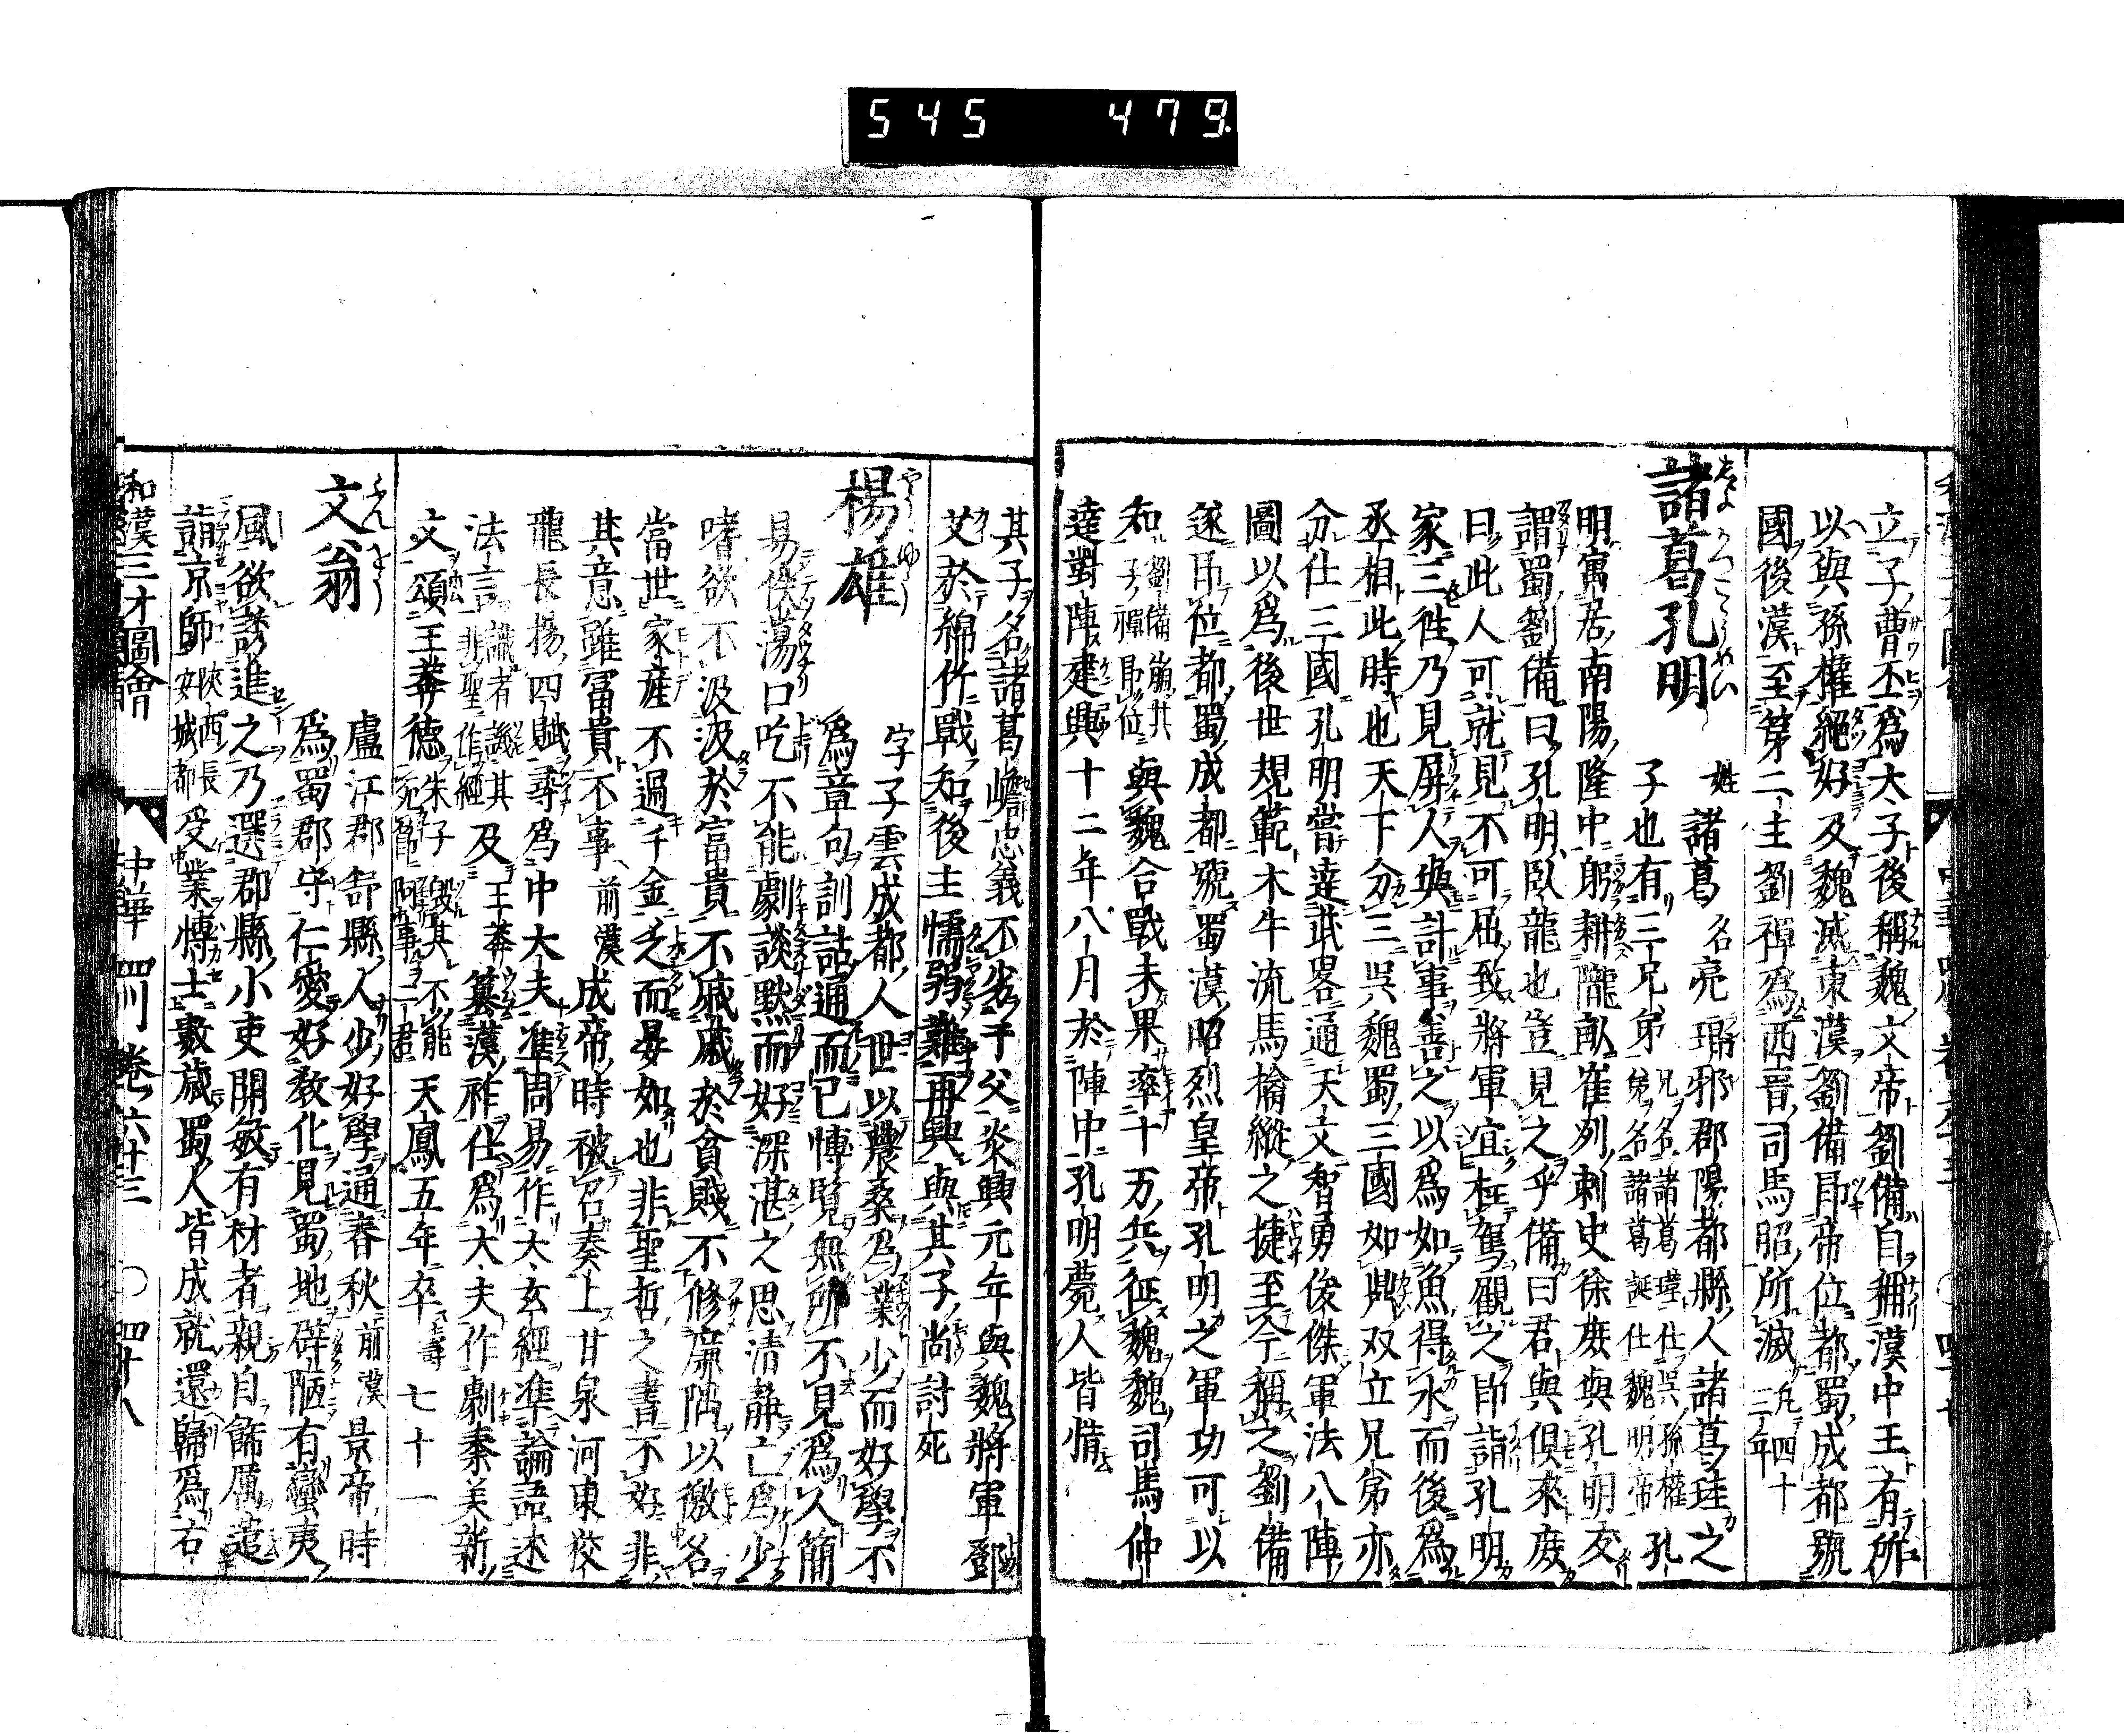 545 479
立子曹丕爲大子後稱魏文帝劉備自稱漢中王有所
以與孫權絕好及魏滅東漢劉備即帝位都蜀成都號
國後漢至第二主劉禪爲西晋司馬昭所滅凡四十三年
諸葛孔明
姓諸葛名亮瑯邪郡陽都縣人諸葛珪之
子也有三兄弟兄名諸葛瑾仕吳孫權弟名諸葛誕仕魏明帝孔
明寓居南陽隆中躬耕隴畝崔列刺史徐庶與孔明友
謂蜀劉備曰孔明臥龍也豈見之乎備曰君與俱來庶
曰此人可就見不可屈致將軍宜枉駕觀之即詣孔明
家三徃乃見屏人與計事善之以爲如魚得水而後爲
丞相此時也天下分三吳魏蜀三國如鼎双立兄弟亦
分仕三國孔明甞達武畧通天文智勇俊傑軍法八陣
圖以爲後世規範木牛流馬檎縱之捷至今稱之劉備
遂即位都蜀成都號蜀漢昭烈皇帝孔明之軍功可以
知劉備崩其子禪即位與魏合戰未果率十万兵征魏魏司馬仲
達對陣建興十二年八月於陣中孔明薨人皆惜
其子名諸葛嶦忠義不劣于父炎興元年與魏將軍鄧
艾於綿竹戰知後主懦弱難再興與其子尚討死
楊雄
字子雲成都人世以農桑爲業少而好學不
爲章句訓詁通而已博覽無所不見爲人簡
易佚蕩口吃不能劇談默而好深湛之思清靜亡爲少
嗜欲不汲汲於富貴不戚戚於貧賤不修廉隅以徼名
當世家産不過千金乏而晏如也非聖哲之書不好非
其意雖富貴不事前漢成帝時被召奏上甘泉河東校
龍長揚四賦尋爲中大夫準周易作大玄經準論語述
法言識者譏其非聖作經及王莽簒漢祚仕爲大夫作劇秦美新
文頌王莽德朱子毀其不能死節阿事二君天鳳五年卒壽七十一
文翁
盧江郡舒縣人少好學通春秋前漢景帝時
爲蜀郡守仁愛好教化見蜀地辟陋有蠻夷
風欲誘進之乃選郡縣小吏開敏有材者親自飾厲遣
詣京師陝西長安城都受業博士數歲蜀人皆成就還歸爲右
和漢三才圖會 中華 四川 卷六十三 〇 四十八